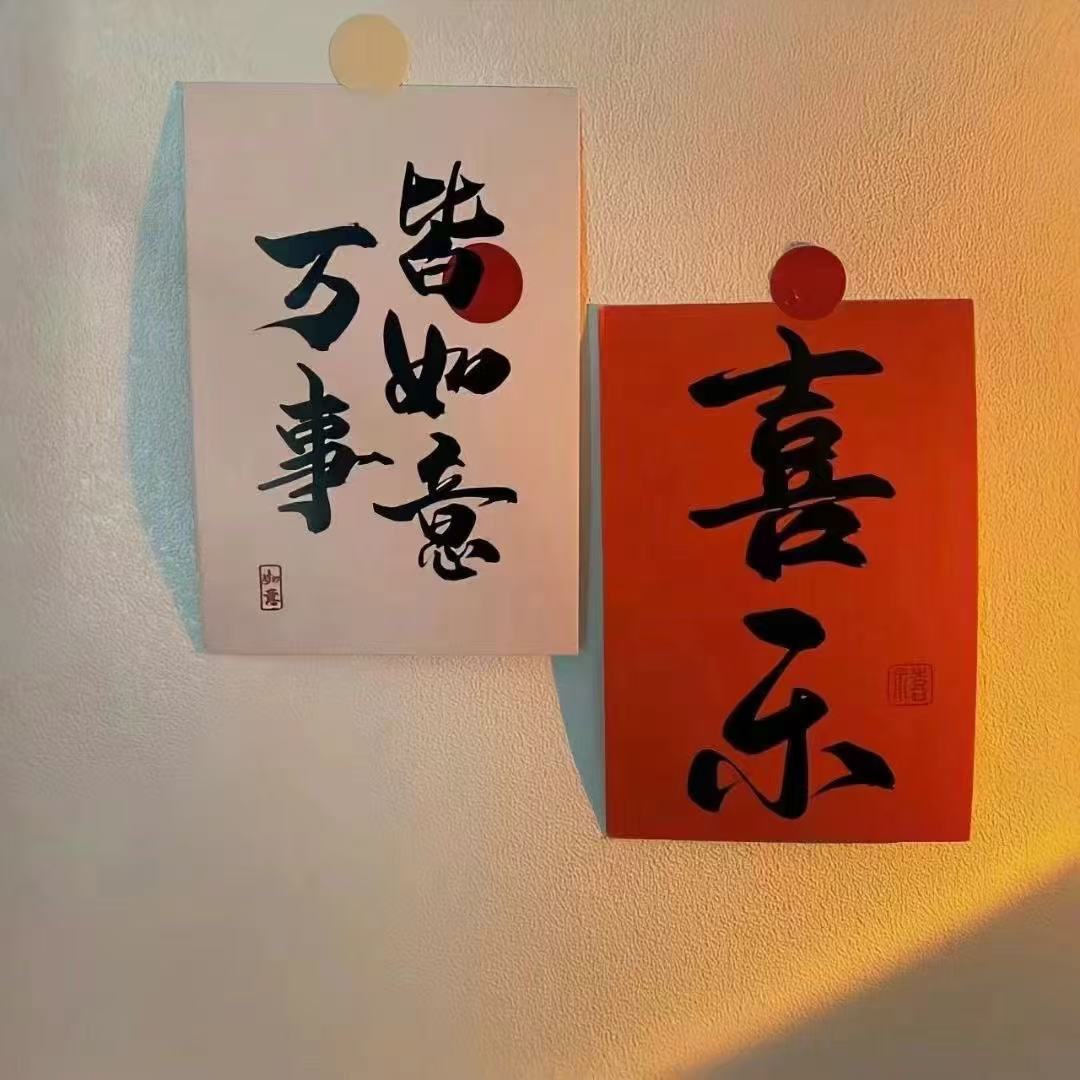 万事
皆如意
如意
喜乐